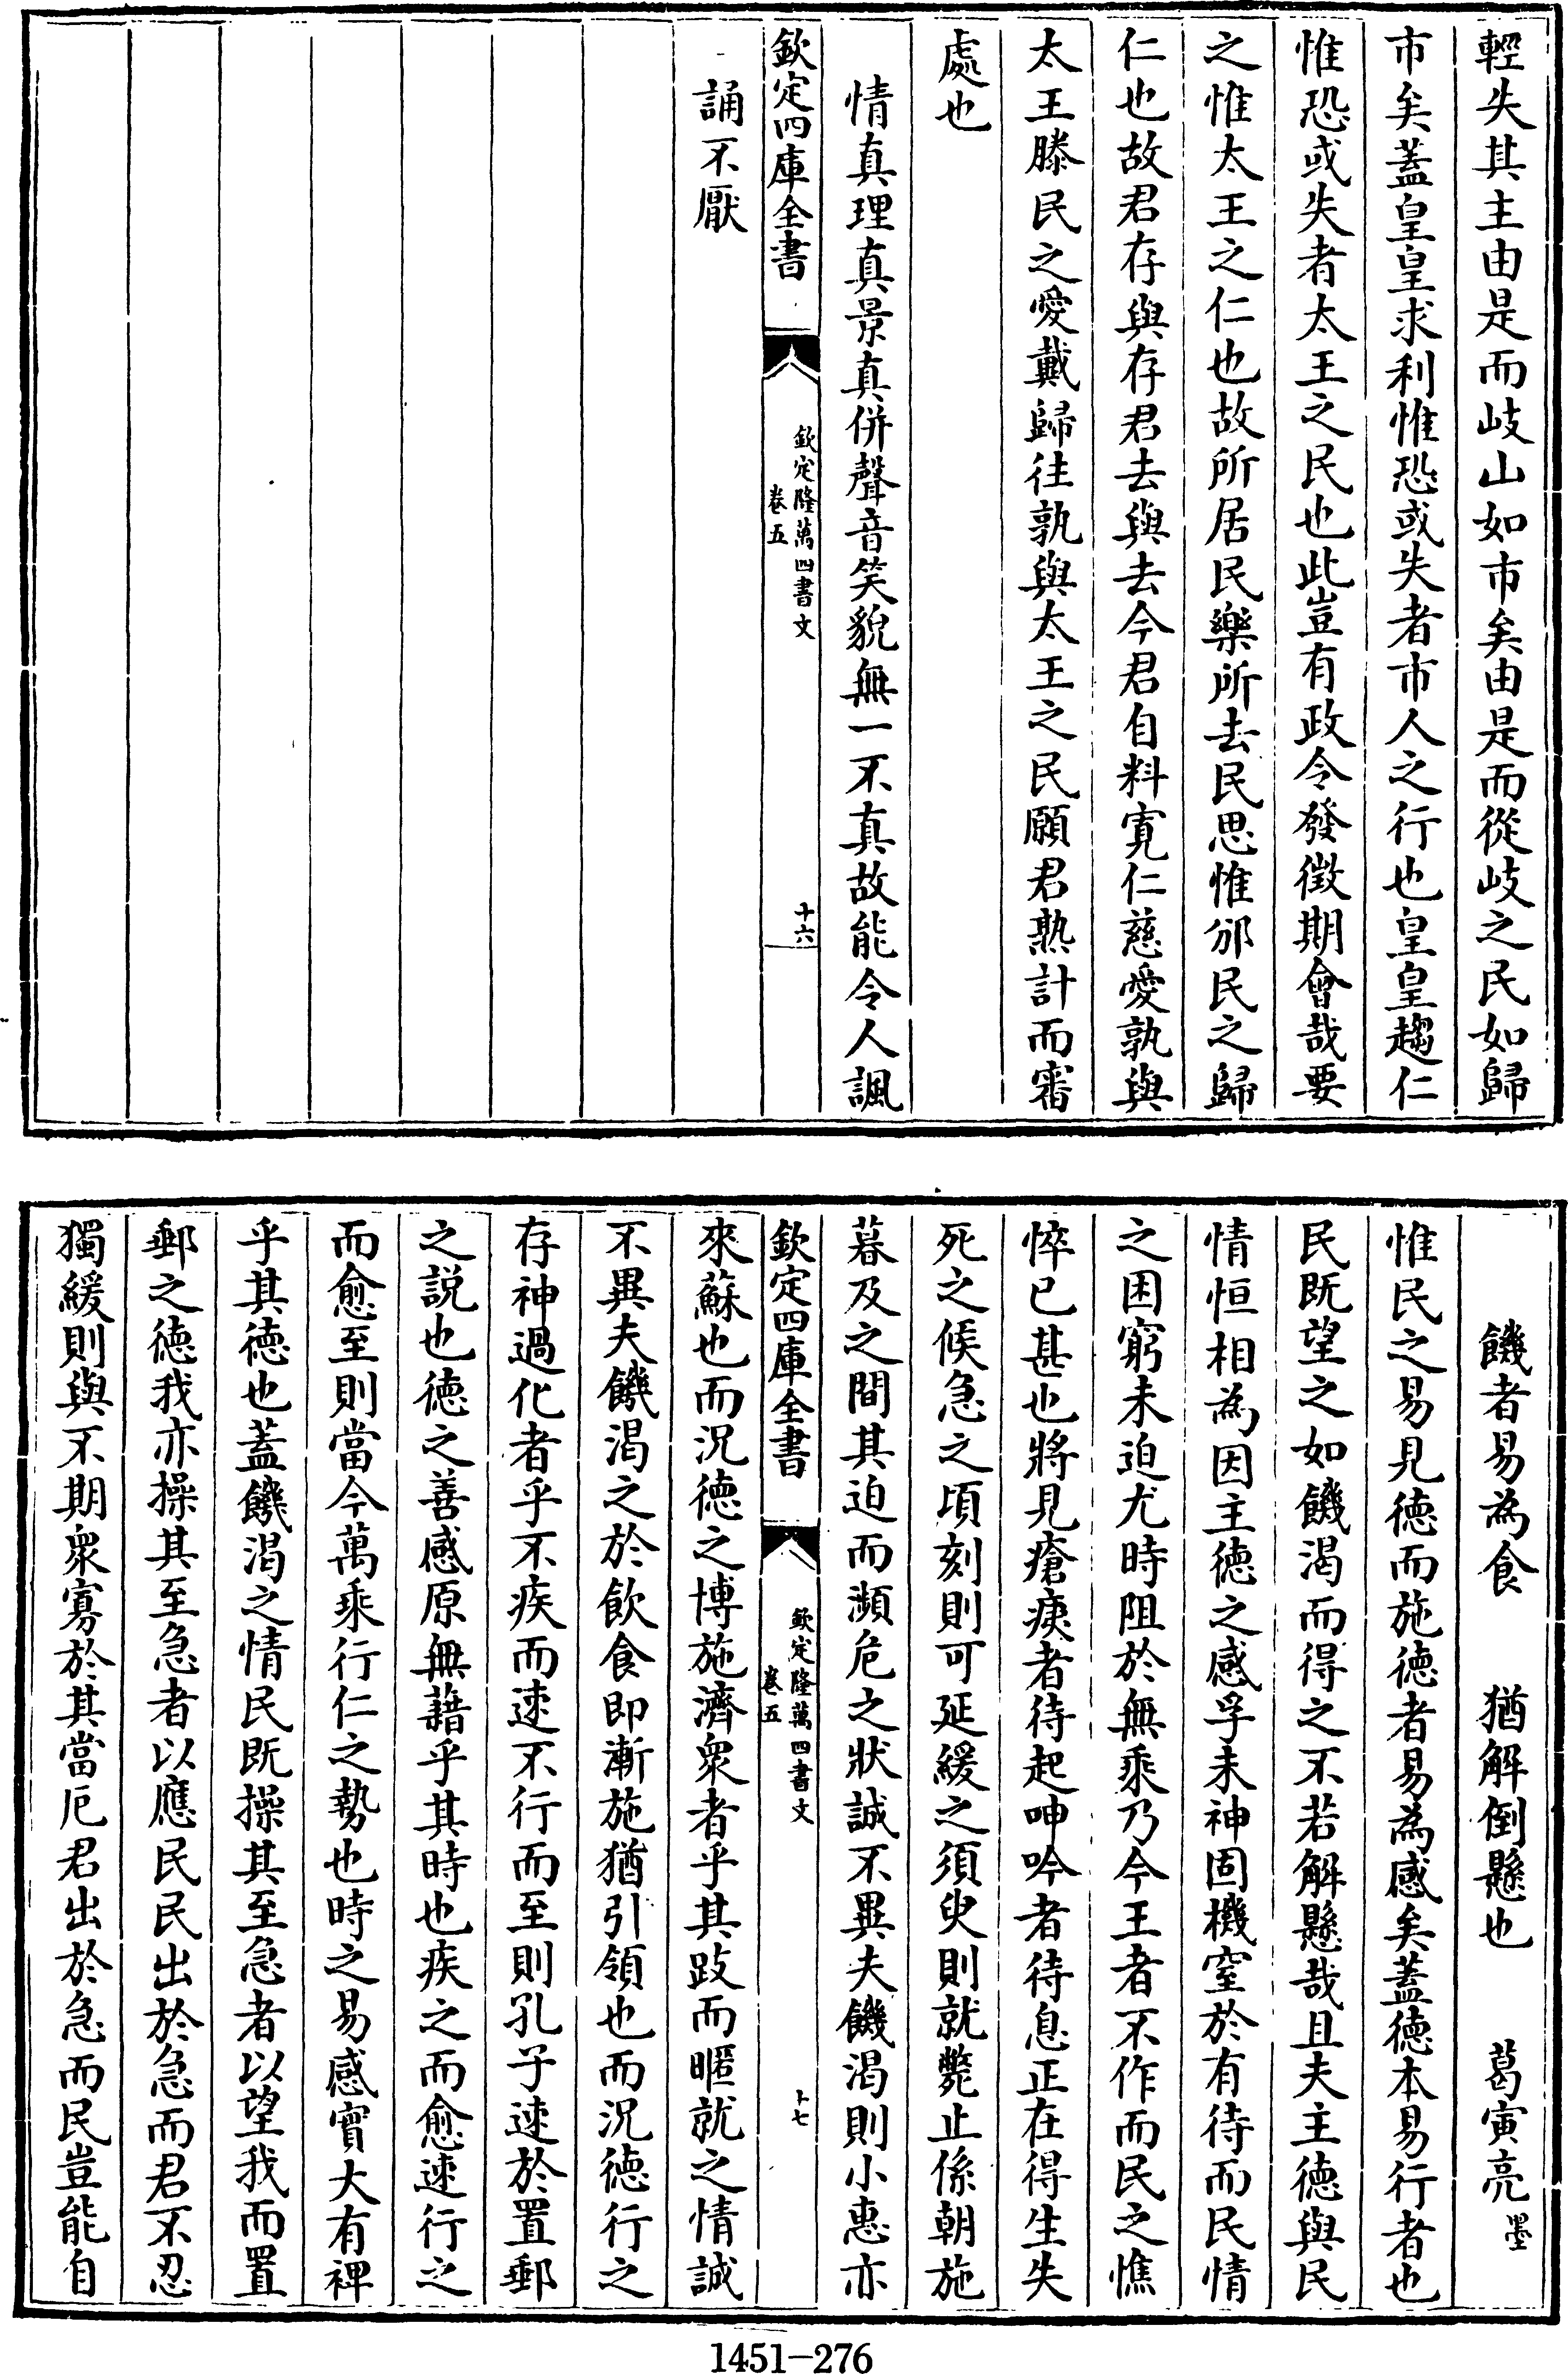 輕失其主由是而岐山如市矣由是而從岐之民如歸
市矣蓋皇皇求利惟恐或失者市人之行也皇皇趨仁
惟恐或失者太王之民也此豈有政令發徵期會哉要
之惟太王之仁也故所居民樂所去民思惟邠民之歸
仁也故君存與存君去與去今君自料寛仁慈愛孰與
太王滕民之愛戴歸往孰與太王之民願君熟計而審
處也
情真理真景真併聲音笑貌無一不真故能令人諷
欽定四庫全書
欽定隆萬四書文
卷五
十六
誦不厭
饑者易為食 猶解倒懸也 葛寅亮 墨
惟民之易見徳而施徳者易為感矣蓋徳本易行者也
民既望之如饑渴而得之不若解懸哉且夫主徳與民
情恒相為因主徳之感孚未神固機窒於有待而民情
之困窮未迫尤時阻於無乘乃今王者不作而民之憔
悴已甚也將見瘡痍者待起呻吟者待息正在得生失
死之候急之頃刻則可延緩之須臾則就斃止係朝施
暮及之間其迫而瀕危之狀誠不異夫饑渴則小惠亦
欽定四庫全書
欽定隆萬四書文
卷五
十七
來蘇也而況徳之博施濟衆者乎其跂而暱就之情誠
不異夫饑渴之於飲食即漸施猶引領也而況徳行之
存神過化者乎不疾而速不行而至則孔子速於置郵
之説也徳之善感原無藉乎其時也疾之而愈速行之
而愈至則當今萬乘行仁之勢也時之易感實大有裨
乎其徳也蓋饑渴之情民既操其至急者以望我而置
郵之徳我亦操其至急者以應民民出於急而君不忍
獨緩則與不期衆寡於其當厄君出於急而民豈能自
1451-276